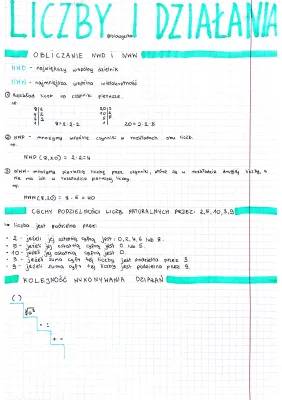 LICZBY I DZIAŁANIA
OBLICZANIE NWD i NWW
NWD - największy wspólny dzielnik
NWW - najmniejsza wspólna wielokrotność
① Rozkład liczb na czynniki pierwsze.
np.
8 | 2
4 | 2
2 | 2
1
8 = 2·2·2
20 | 2
10 | 2
5 | 5
1
20 = 2·2·5
② NWD - mnożymy wspólne czynniki w rozkładach obu liczb.
np.
NWD (8,20) = 2·2=4
③ NWW - mnożymy pierwszą liczbę przez czynniki, które są w rozkładzie drugiej liczby, a nie ma ich w rozkładzie pierwszej liczby.
np.
NWW (8,20) = 8·5 = 40
CECHY PODZIELNOŚCI LICZB NATURALNYCH PRZEZ: 2,5,10,3,9
↳ liczba jest podzielna przez:
- 2 - jeżeli jej ostatnią cyfrą jest: 0,2,4,6 lub 8.
- 5 - jeżeli jej ostatnią cyfrą jest 0 lub 5.
- 10 - jeżeli jej ostatnią cyfrą jest 0.
- 3 - jeżeli suma cyfr tej liczby jest podzielna przez 3.
- 9 - jeżeli suma cyfr tej liczby jest podzielna przez 9.
KOLEJNOŚĆ WYKONYWANIA DZIAŁAŃ
( )
· :
+ -